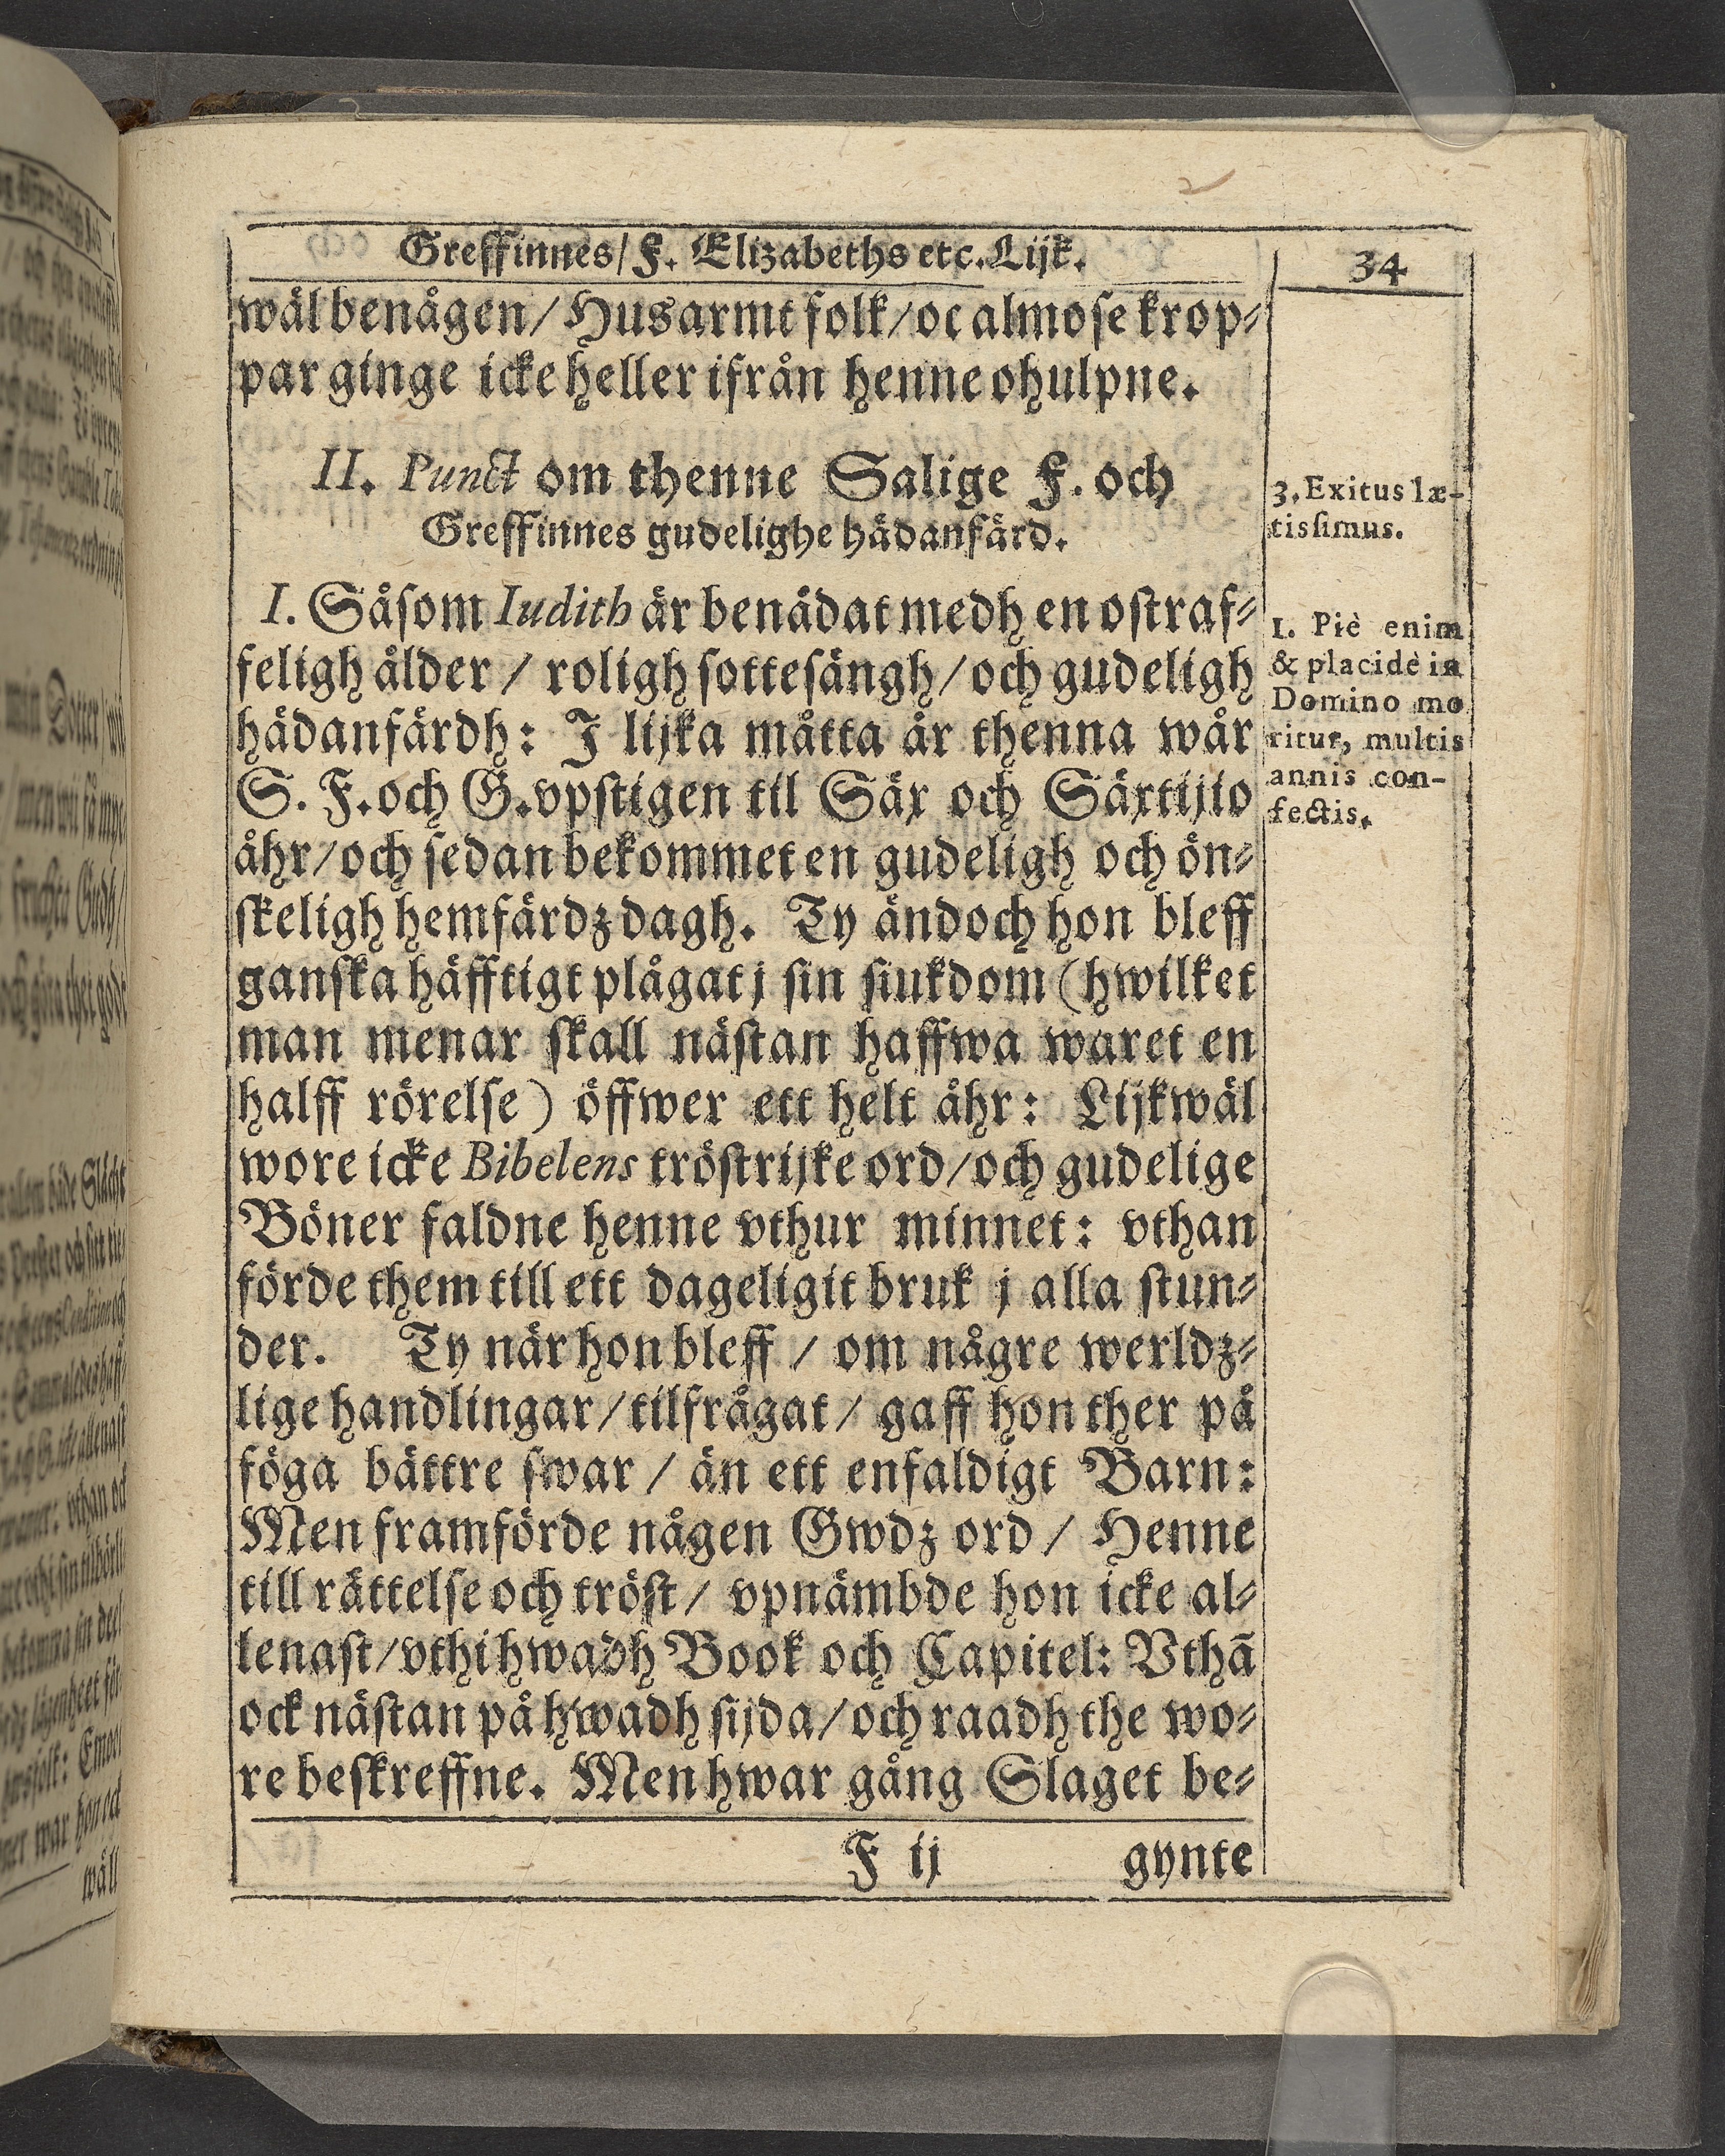 Greffinnes/ F. Elizabeths etc. Lijk.
34
wäl benågen/ Husarmt folk/ oc almose krop⸗
par ginge icke heller ifrån henne ohulpne.
II. Punct om thenne Salige F. och
Greffinnes gudelighe hädanfärd.
3. Exitus læ-
tissimus.
I. Såsom Iudith är benådat medh en ostraf⸗
feligh ålder / roligh sottesängh/ och gudeligh
hädanfärdh: J lijka måtta är thenna wår
S. F. och G. vpstigen til Säx och Säxtijio
åhr/ och sedan bekommet en gudeligh och ön⸗
skeligh hemfärdz dagh. Ty ändoch hon bleff
ganska häfftigt plågat j sin siukdom (hwilket
man menar skall nästan haffwa waret en
halff rörelse) öffwer ett helt åhr: Lijkwäl
wore icke Bibelens tröstrijke ord/ och gudelige
Böner faldne henne vthur minnet: vthan
förde them till ett dageligit bruk j alla stun⸗
der. Ty när hon bleff / om någre werldz⸗
lige handlingar/ tilfrågat/ gaff hon ther på
föga bättre swar / än ett enfaldigt Barn:
Men framförde någen Gwdz ord / Henne
till rättelse och tröst/ vpnämbde hon icke al⸗
lenast/ vthi hwadh Book och Capitel: Vthā
ock nästan på hwadh sijda/ och raadh the wo⸗
re beskreffne. Men hwar gång Slaget be⸗
1. Piè enim
& placidè in
Domino mo
ritur, multis
annis con-
fectis.
F ij
gynte